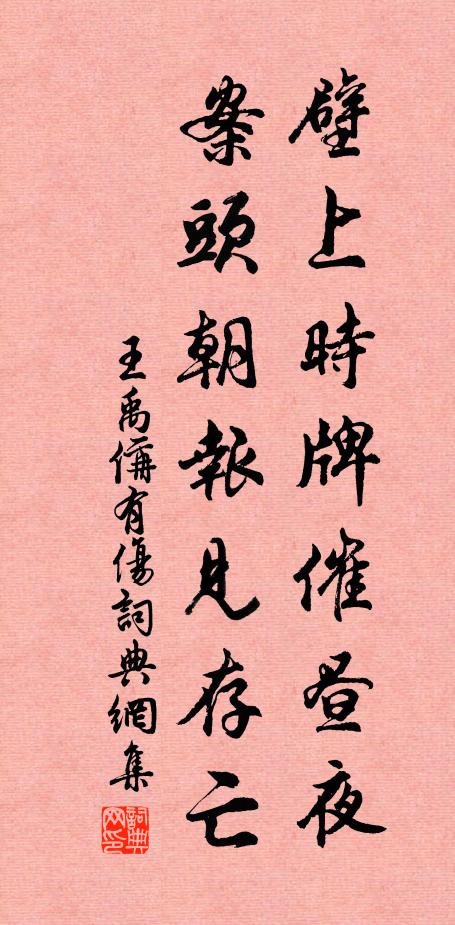 壁上時牌催昼夜
案頭朝報見存亡
王禹偁有傷詞典網集
詞典网印